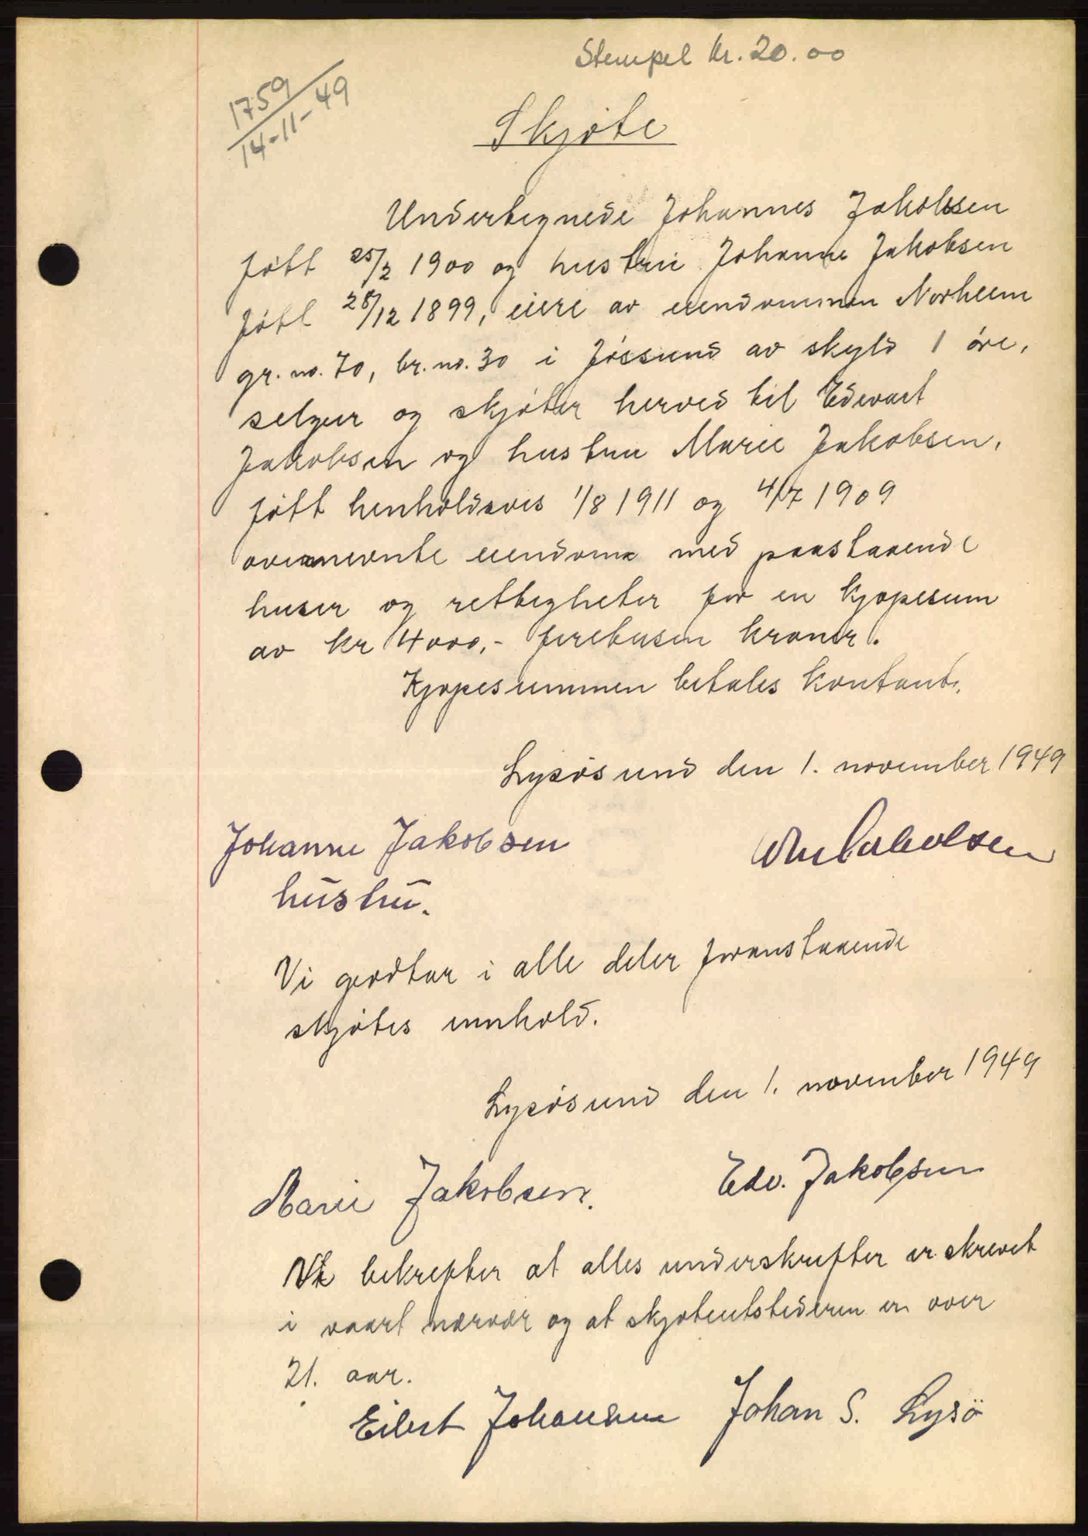 Stempel kr. 20.00
1759
14-11-49
Skjøte
Undertegnede Johannes Jakobsen
født 25/2 1900 og hustru Johanne Jakobsen
født 28/12 1899, eiere av eiendommen Norheim
gr. no. 70, br. no. 30 i Jøssund av skyld 1 øre,
selger og skjøter herved til Edevart
Jakobsen og hustru Marie Jakobsen,
født henholdsvis 1/8 1911 og 4/7 1909
ovennevnte eiendom med paastaaende
huser og rettigheter for en kjøpesum
av kr 4000,- firetusen kroner.
Kjøpesummen betales kontant.
Lysøsund den 1. november 1949
Johanne Jakobsen
hustru.
Jakobsen
Vi godtar i alle deler foranstaaende
skjøtes innhold.
Lysøsund den 1. november 1949
Marie Jakobsen.
Edv. Jakobsen
Vi bekrefter at alles underskrifter er skrevet
i vaart nærvær og at skjøteutstederen er over
21. aar.
Eilert Johansen Johan S. Lysö